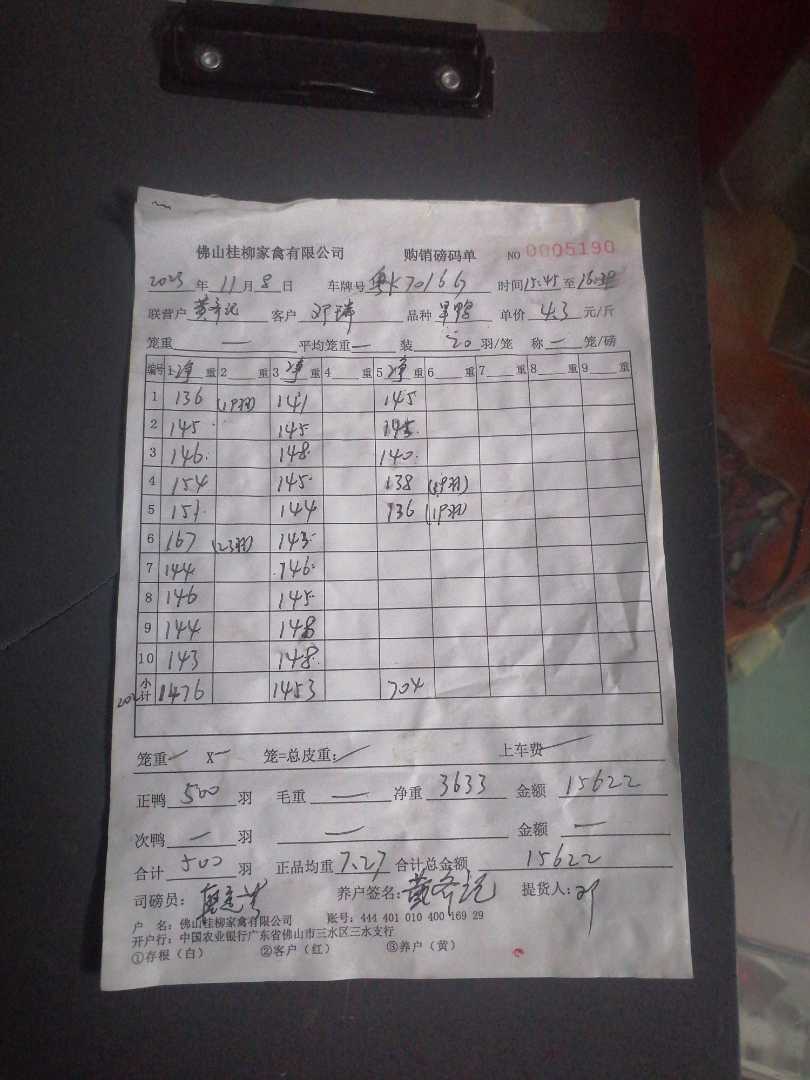 佛山桂柳家禽有限公司 购销磅码单 NO 0005190
2023 年 11 月 8 日 车牌号 粤K70166 时间 15:45 至 16:30
联营户 黄齐记 客户 邓 品种 单价 4.3 元/斤
笼重 — 平均笼重 — 装 20 羽/笼 称 — 笼/磅
编号 1 净 重 2 重 3 净 重 4 重 5 净 重 6 重 7 重 8 重 9 重
1 136 (19羽) 141 145
2 145 145 145
3 146 148 140
4 154 145 138 (19羽)
5 151 144 136 (19羽)
6 167 (23羽) 143
7 144 146
8 146 145
9 144 148
10 143 148
小计 1476 1453 704
笼重 — X — 笼=总皮重: 上车费
正鸭 500 羽 毛重 — 净重 3633 金额 15622
次鸭 — 羽 — 金额 —
合计 500 羽 正品均重 7.27 合计总金额 15622
司磅员: 养户签名: 黄齐记 提货人: 邓
户 名: 佛山桂柳家禽有限公司 账号: 444 401 010 400 169 29
开户行: 中国农业银行广东省佛山市三水区三水支行
①存根(白) ②客户(红) ③养户(黄)